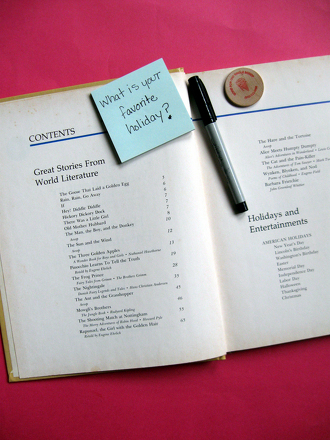 What is your
favorite
holiday?
CONTENTS
Great Stories From
World Literature
The Goose That Laid a Golden Egg 5
Rain, Rain, Go Away 7
If 7
Hey! Diddle Diddle 7
Hickory Dickory Dock
There Was a Little Girl
Old Mother Hubbard
The Man, the Boy, and the Donkey
Aesop
The Sun and the Wind
Aesop
The Three Golden Apples
A Wonder Book for Boys and Girls • Nathaniel Hawthorne
Pinocchio Learns To Tell the Truth
Retold by Eugene Ehrlich
The Frog Prince
Fairy Tales from Grimm • The Brothers Grimm
The Nightingale
Danish Fairy Legends and Tales • Hans Christian Andersen
The Ant and the Grasshopper
Aesop
Mowgli's Brothers
The Jungle Book • Rudyard Kipling
The Shooting Match at Nottingham
The Merry Adventures of Robin Hood • Howard Pyle
Rapunzel, the Girl with the Golden Hair
Retold by Eugene Ehrlich
The Hare and the Tortoise
Aesop
Alice Meets Humpty Dumpty
The Cat and the
Wynken, Blynken, and Nod
Poems of Childhood • Eugene Field
Barbara Frietchie
John Greenleaf Whittier
Holidays and
Entertainments
AMERICAN HOLIDAYS
New Year's Day
Lincoln's Birthday
Washington's Birthday
Easter
Memorial Day
Independence Day
Labor Day
Halloween
Thanksgiving
Christmas